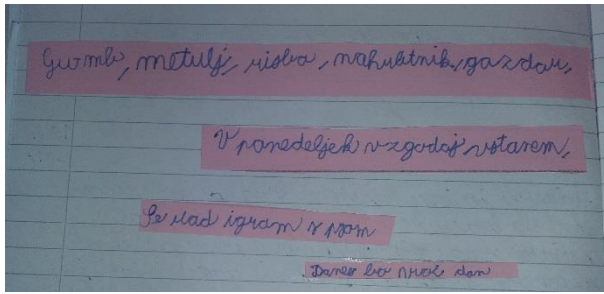 Gumb, metulj, risba, nahrbtnik, gozdar,
V ponedeljek vzgodaj vstanem.
Se rad igram s psom
Danes bo vroč dan